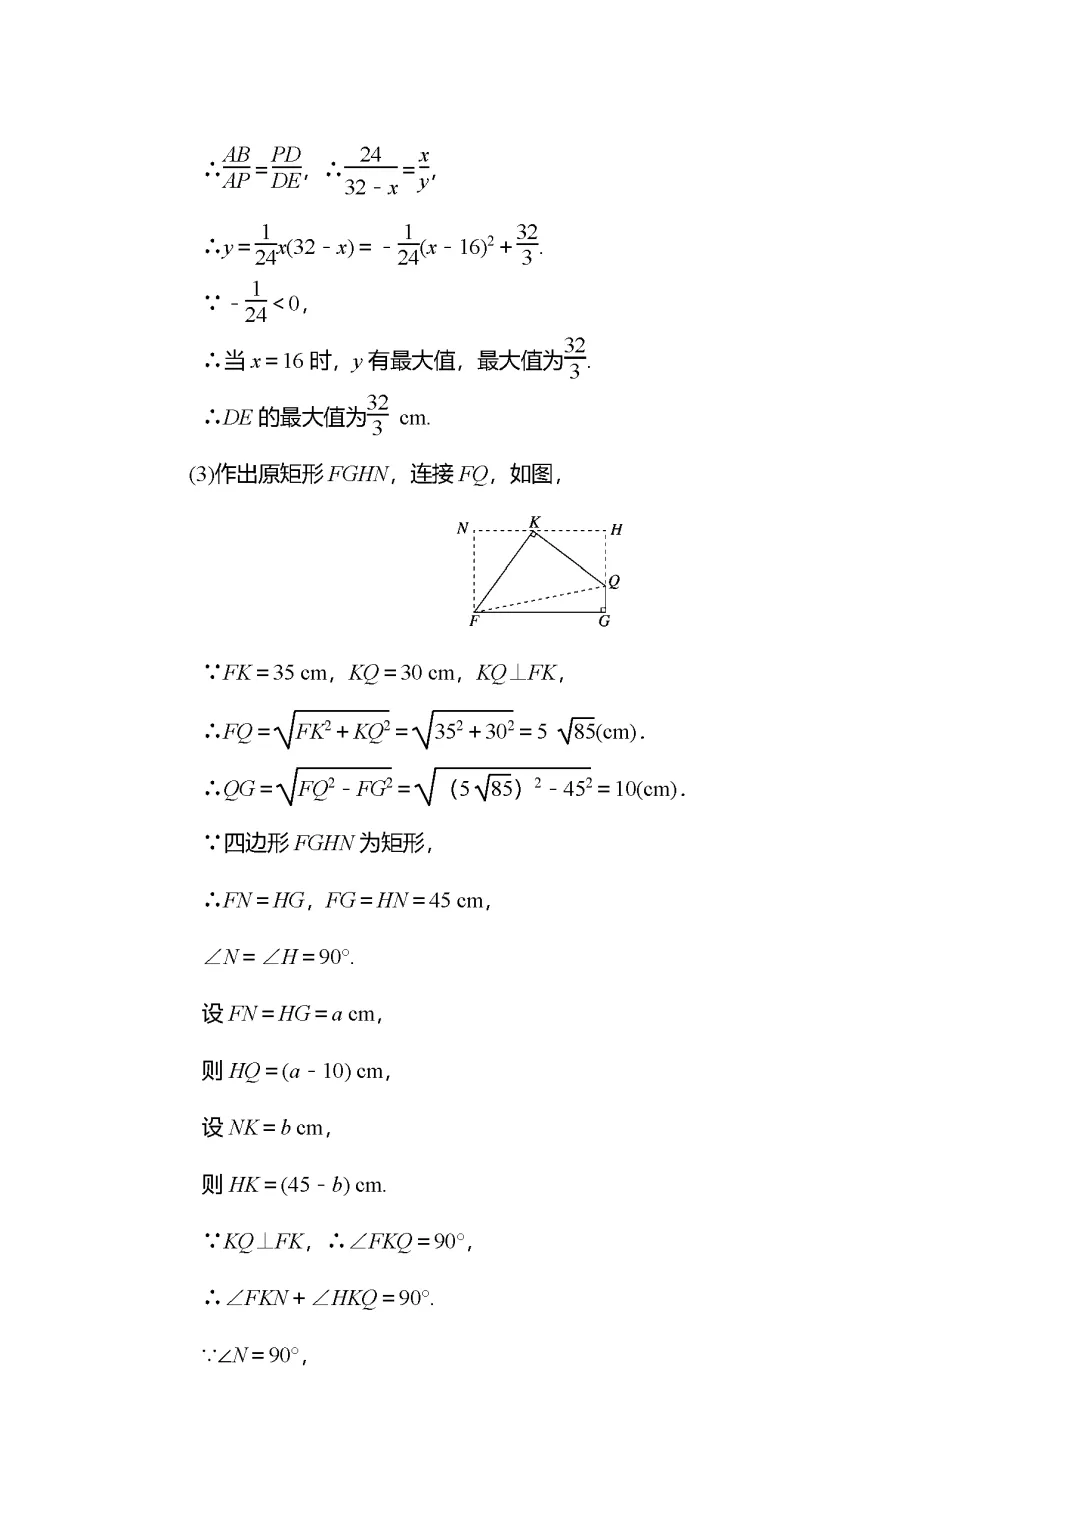 ∴AB/AP=PD/DE，∴24/(32－x)=x/y，
∴y=1/24x(32－x)=－1/24(x－16)²+32/3.
∵－1/24<0，
∴当x=16时，y有最大值，最大值为32/3.
∴DE的最大值为32/3 cm.
(3)作出原矩形FGHN，连接FQ，如图，
N K H
Q
F G
∵FK=35 cm，KQ=30 cm，KQ⊥FK，
∴FQ=√(FK²+KQ²)=√(35²+30²)=5 √85(cm)．
∴QG=√(FQ²－FG²)=√(（5√85）²－45²)=10(cm)．
∵四边形FGHN为矩形，
∴FN=HG，FG=HN=45 cm，
∠N=∠H=90°.
设FN=HG=a cm，
则HQ=(a－10) cm，
设NK=b cm，
则HK=(45－b) cm.
∵KQ⊥FK，∴∠FKQ=90°，
∴∠FKN+∠HKQ=90°.
∵∠N=90°，